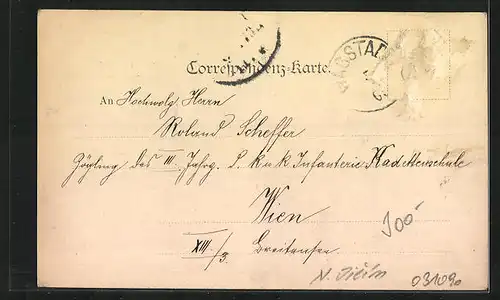 Correspondenz-Karte.
An Hochwolg. Herrn
Roland Scheffer
Zögling des III. Jahrg. d. k u k Infanterie-Kadettenschule
Wien
XIII/3. Breitensee
300
031090